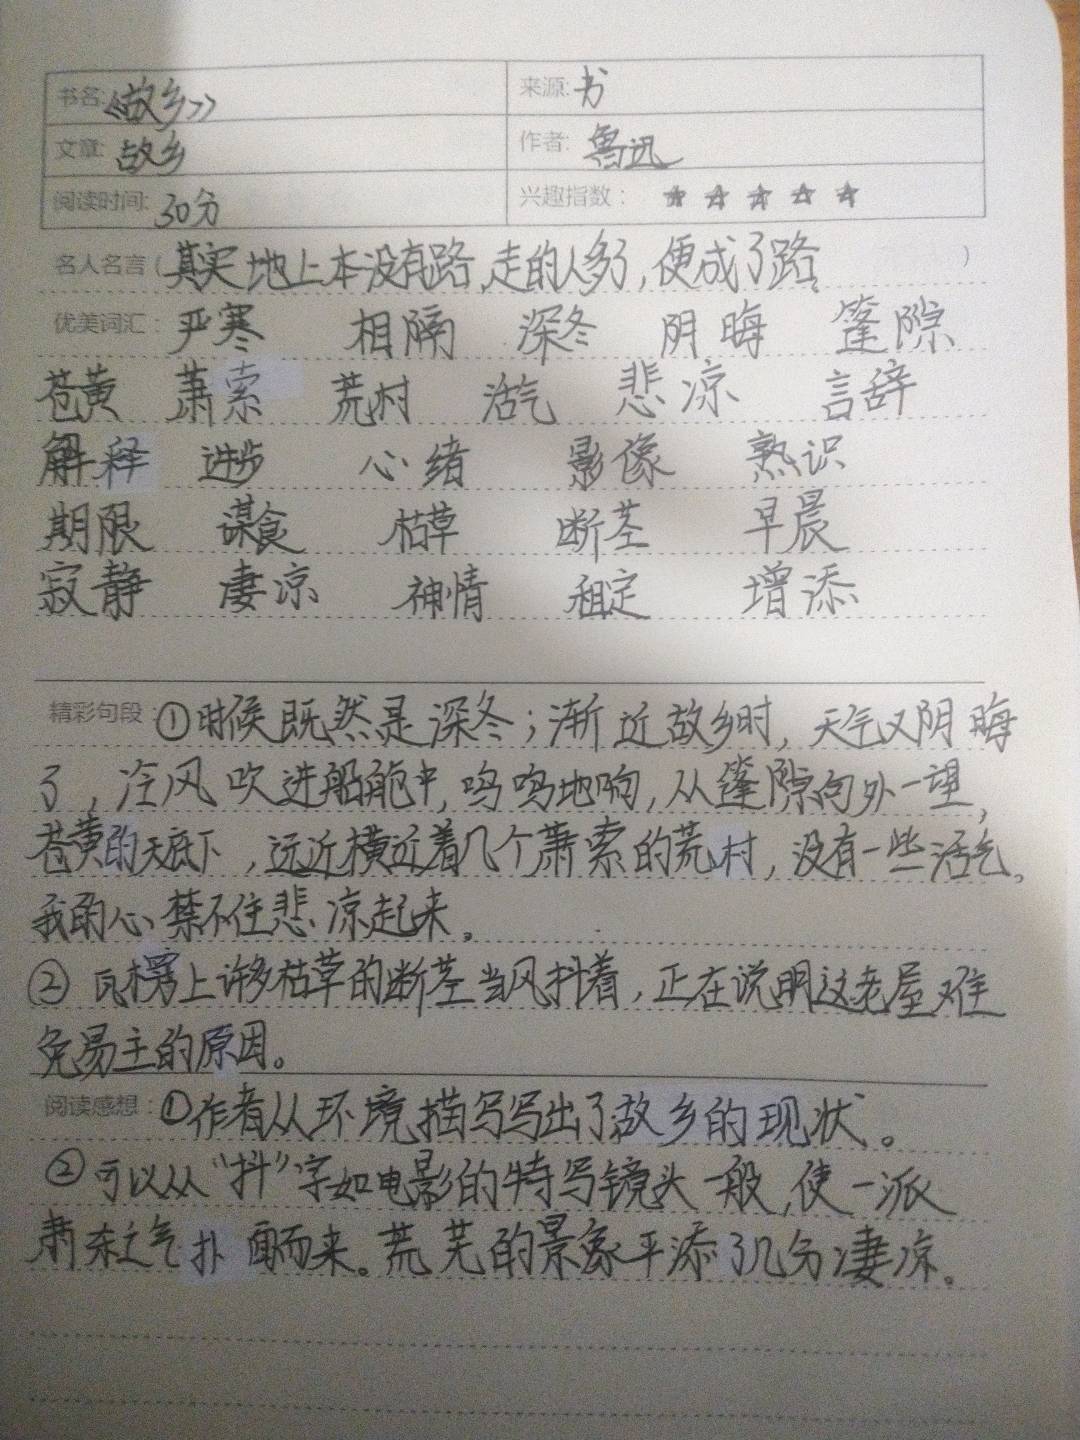 书名:《故乡》 来源:书
文章:故乡 作者:鲁迅
阅读时间:30分 兴趣指数:★★★★★
名人名言(其实地上本没有路,走的人多了,便成了路。)
优美词汇:严寒 相隔 深冬 阴晦 篷隙
苍黄 萧索 荒村 活气 悲凉 言辞
解释 进步 心绪 影像 熟识
期限 谋食 枯草 断茎 早晨
寂静 凄凉 神情 租定 增添
精彩句段:①时候既然是深冬;渐近故乡时,天气又阴晦
了,冷风吹进船舱中,呜呜地响,从篷隙向外一望,
苍黄的天底下,远近横近着几个萧索的荒村,没有一些活气。
我的心禁不住悲凉起来。
②瓦楞上许多枯草的断茎当风抖着,正在说明这老屋难
免易主的原因。
阅读感想:①作者从环境描写写出了故乡的现状。
②可以从“抖”字如电影的特写镜头一般,使一派
萧条之气扑面而来。荒芜的景象平添了几分凄凉。